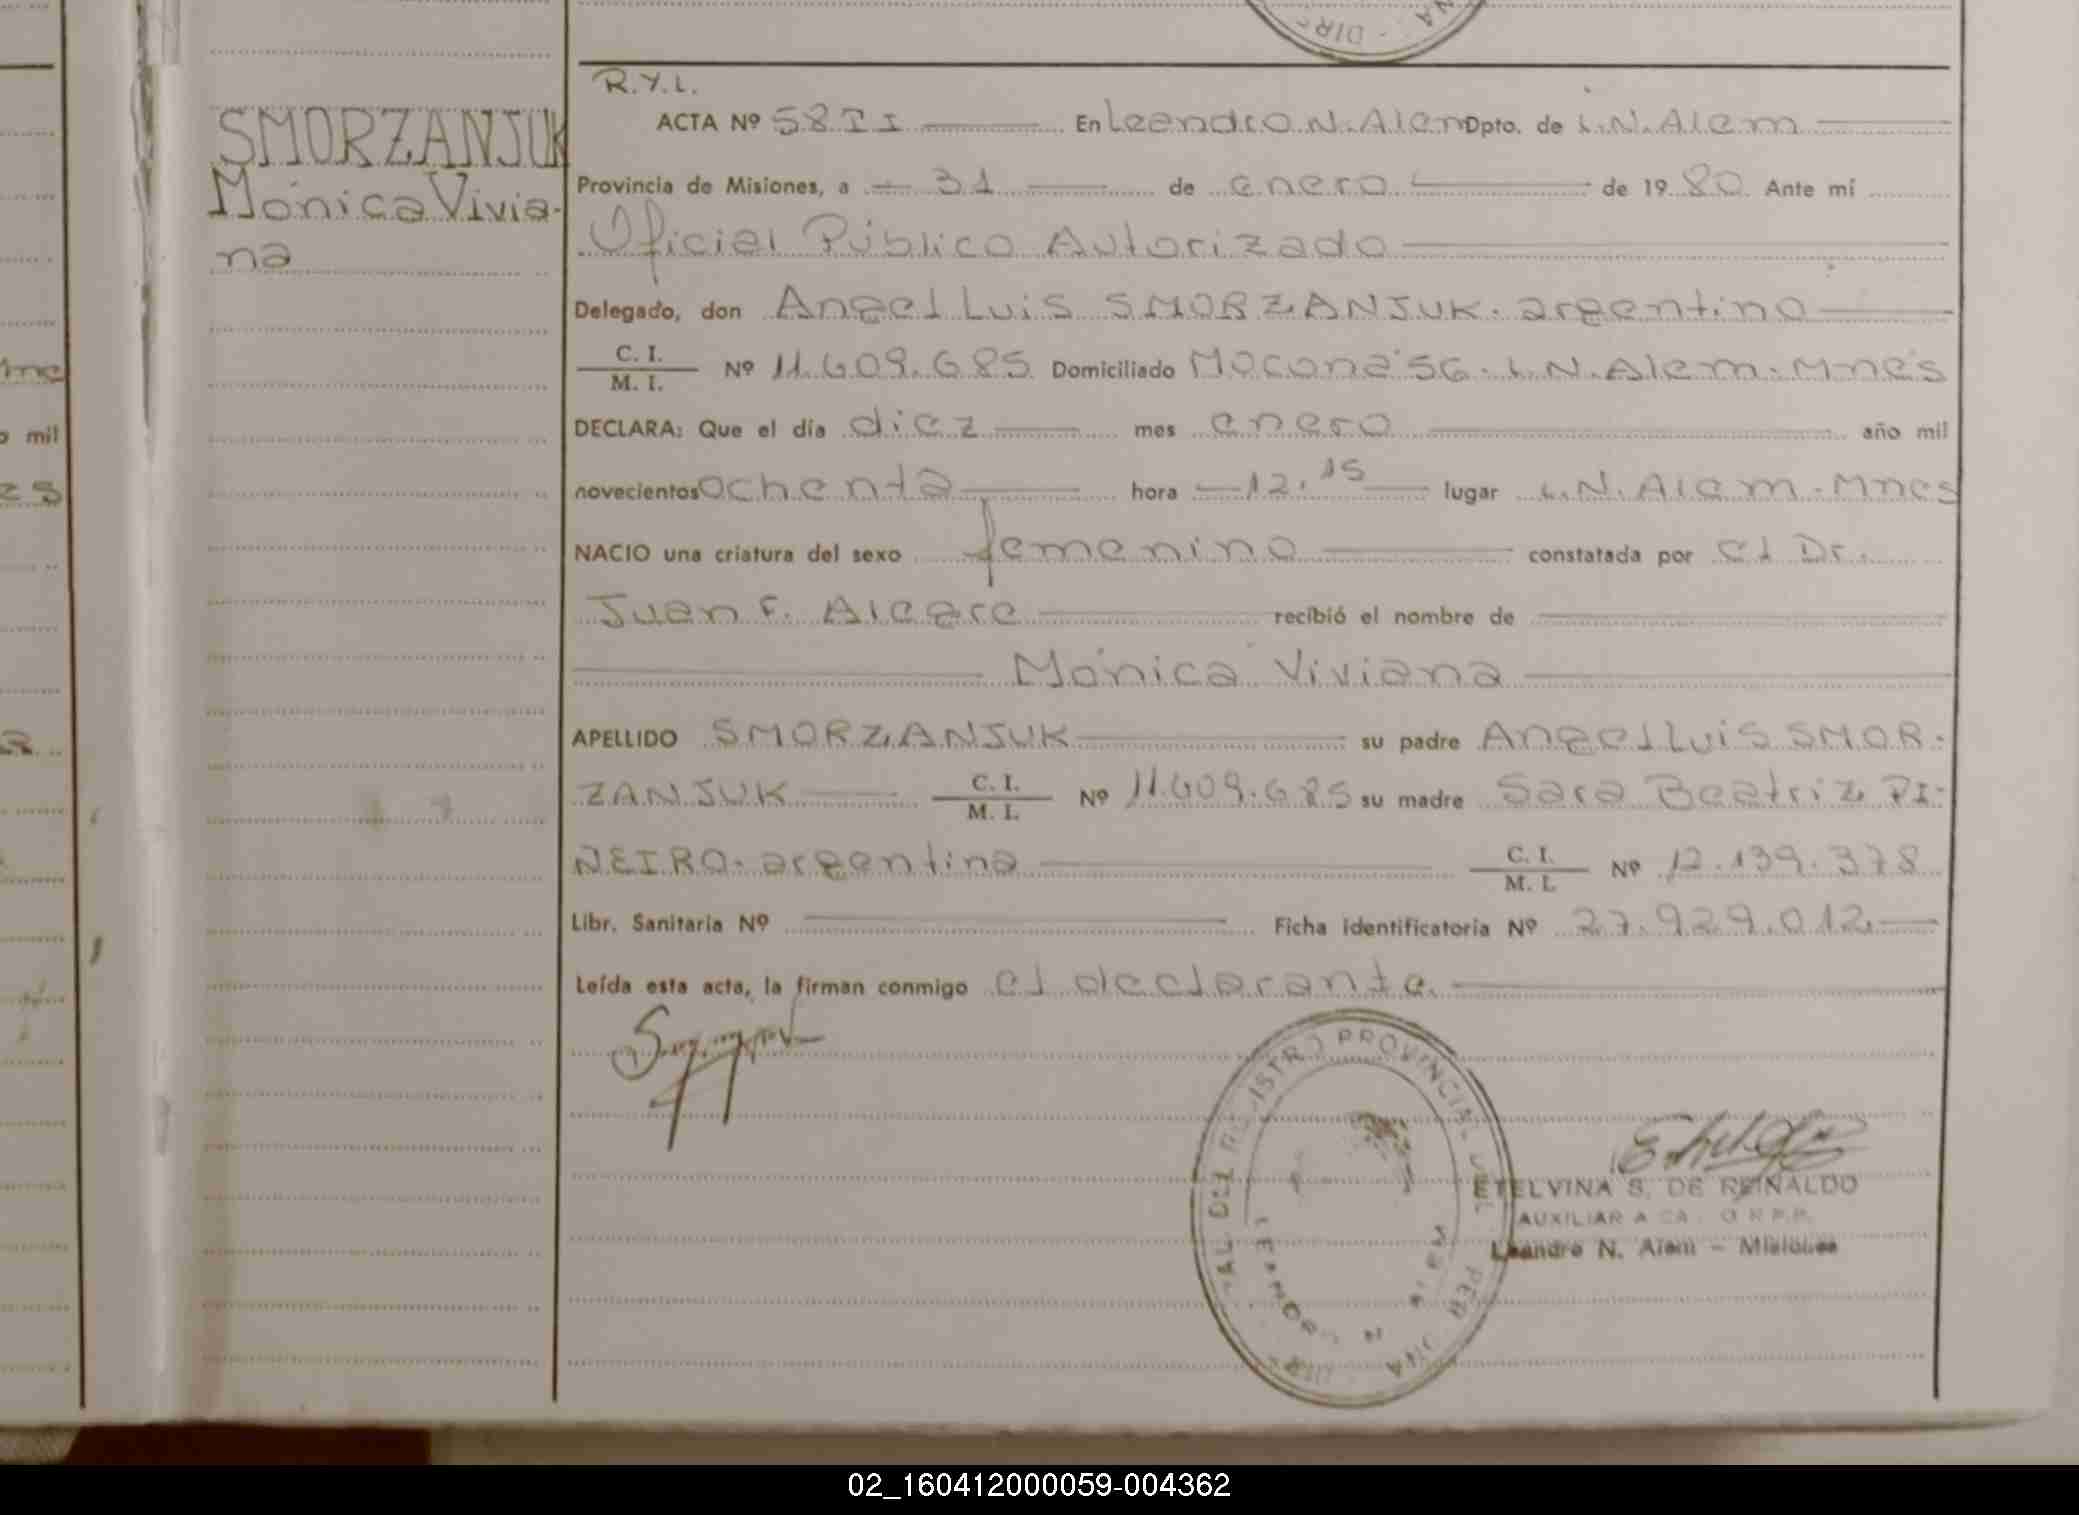 SMORZANJUK
Mónica Vivia-
na
R.Y.L.
ACTA Nº 58 II En Leandro N. Alem Dpto. de L.N. Alem
Provincia de Misiones, a 31 de enero de 1980 Ante mí
Oficial Público Autorizado
Delegado, don Angel Luis SMORZANJUK. argentino
C. I.
M. I. Nº 11.609.685 Domiciliado Mocona 56. L.N. Alem. Mnes
DECLARA: Que el día diez mes enero año mil
novecientos ochenta hora 12.15 lugar L.N. Alem - Mnes
NACIO una criatura del sexo femenino constatada por el Dr.
Juan F. Alegre recibió el nombre de
Mónica Viviana
APELLIDO SMORZANJUK su padre Angel Luis SMOR-
ZANJUK C. I.
M. I. Nº 11.609.685 su madre Sara Beatriz PI-
NEIRO. argentina C. I.
M. I. Nº 12.139.378
Libr. Sanitaria Nº Ficha identificatoria Nº 27.929.012
Leída esta acta, la firman conmigo el declarante.
ISTRO PROVINCIAL DE
ETELVINA S. DE REINALDO
AUXILIAR A
Leandro N. Alem - Misiones
02_160412000059-004362